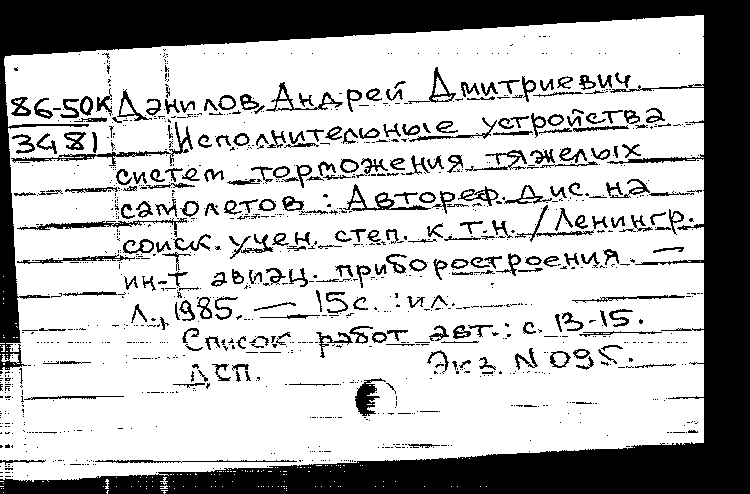 86-50К Данилов, Андрей Дмитриевич.
3481 Исполнительные устройства
систем торможения тяжелых
самолетов : Автореф. дис. на
соиск. учен. степ. к.т.н. / Ленингр.
ин-т авиац. приборостроения. —
Л., 1985. — 15с. : ил.
Список работ авт.: с. 13-15.
ДСП. Экз. N 095.